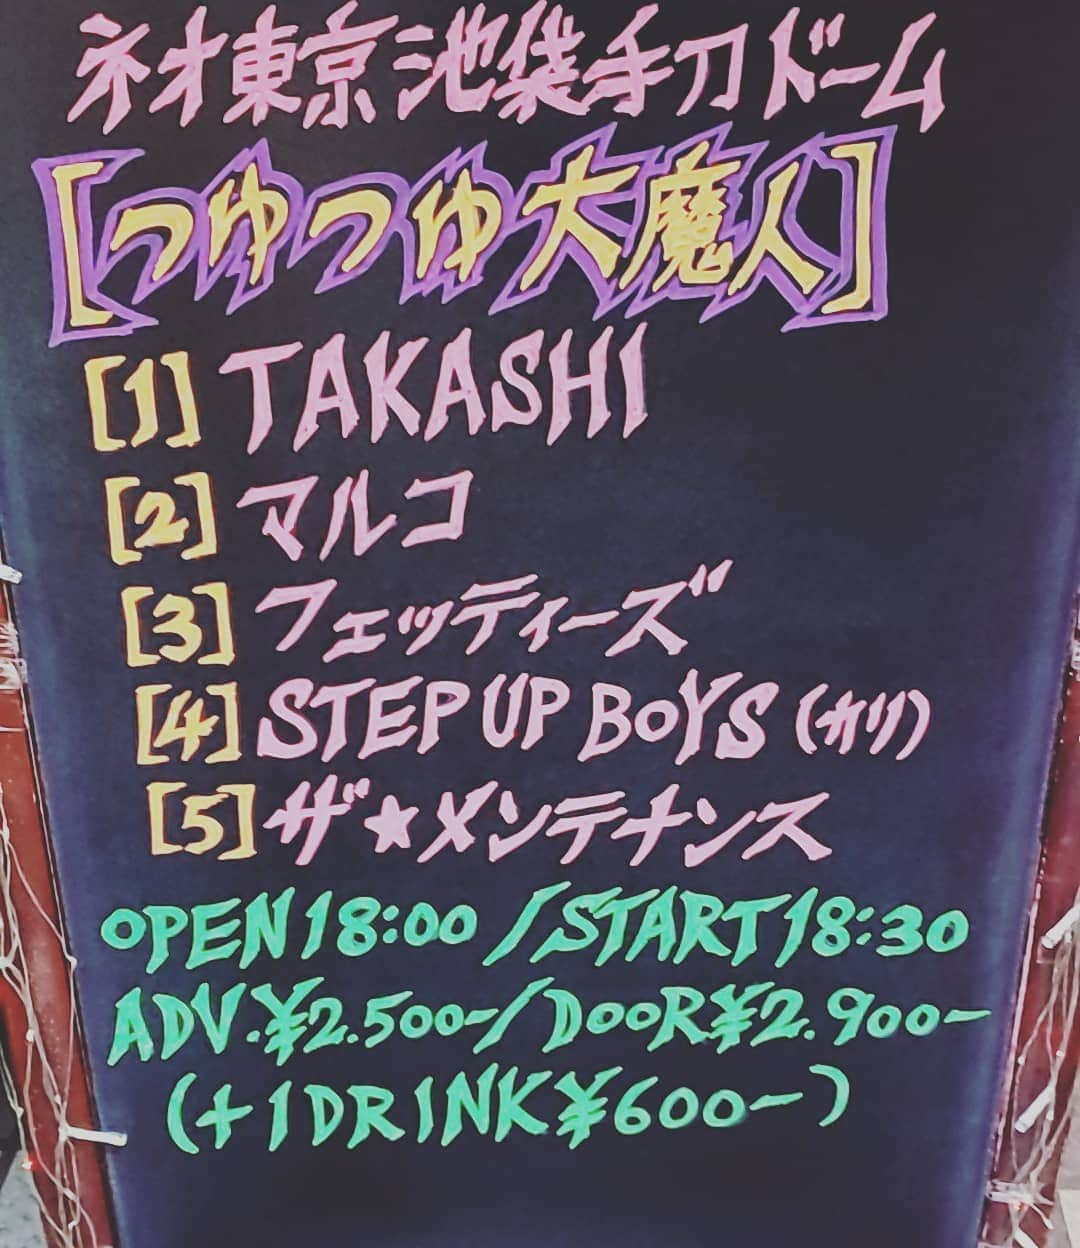 ネオ東京池袋手刀ドーム
[つゆつゆ大魔人]
[1] TAKASHI
[2] マルコ
[3] フェッティーズ
[4] STEP UP BOYS (カリ)
[5] ザ★メンテナンス
OPEN 18:00 / START 18:30
ADV.¥2.500-/DOOR¥2.900-
(+1DRINK¥600-)